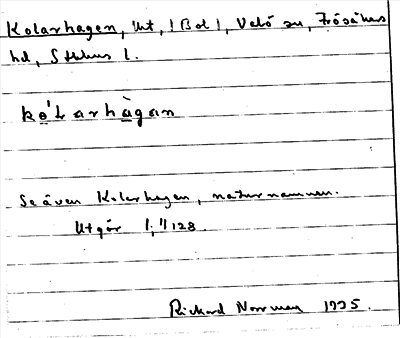 Kolarhagen, Ut, (Bot), Vetö sn, Frösåkers
hd, Sthlms l.
ko̲'Larhàgan
Se även Kolarhagen, naturnamnen.
Utgör 1:11 128.
Rickard Norrman 1925.